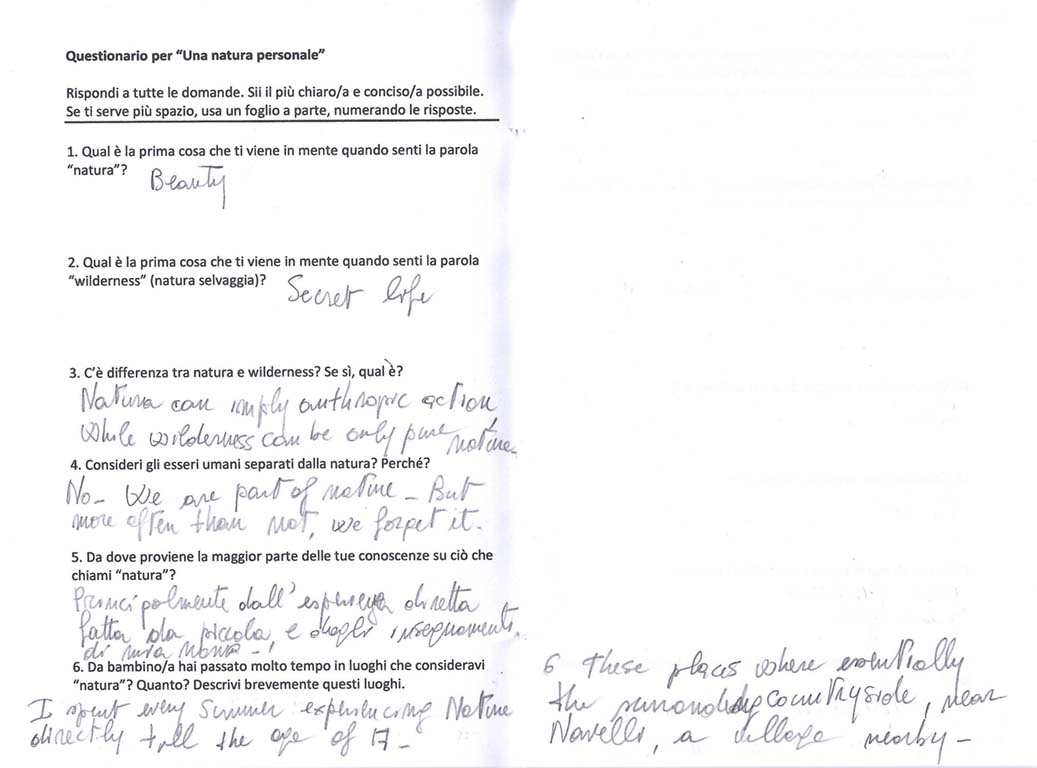 Questionario per “Una natura personale”
Rispondi a tutte le domande. Sii il più chiaro/a e conciso/a possibile.
Se ti serve più spazio, usa un foglio a parte, numerando le risposte.
1. Qual è la prima cosa che ti viene in mente quando senti la parola
“natura”? Beauty
2. Qual è la prima cosa che ti viene in mente quando senti la parola
“wilderness” (natura selvaggia)? Secret life
3. C’è differenza tra natura e wilderness? Se sì, qual è?
Natura can imply anthropic action,
while wilderness can be only pure nature.
4. Consideri gli esseri umani separati dalla natura? Perché?
No - We are part of nature - But
more often than not, we forget it.
5. Da dove proviene la maggior parte delle tue conoscenze su ciò che
chiami “natura”?
Principalmente dall'esperienza diretta
fatta da piccola, e dagli insegnamenti
di mia nonna -
6. Da bambino/a hai passato molto tempo in luoghi che consideravi
“natura”? Quanto? Descrivi brevemente questi luoghi.
I spent every Summer experiencing Nature
directly till the age of 17 -
6 These places where essentially
the surrounding countryside, near
Navelli, a village nearby -